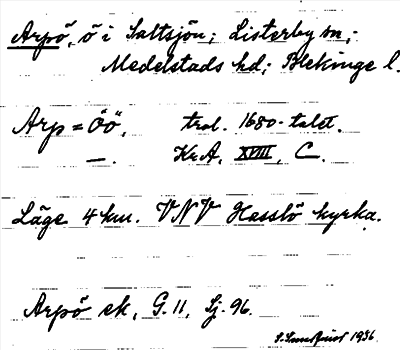 Arpö, ö i Saltsjön; Listerby sn;
Medelstads hd; Blekinge l.
Arp=Öö, trol. 1680-talet.
—. Kr.A, XVIII, C.
Läge 4 km. VNV Hasslö kyrka.
Arpö ek, G. 11, Sj. 96.
1936